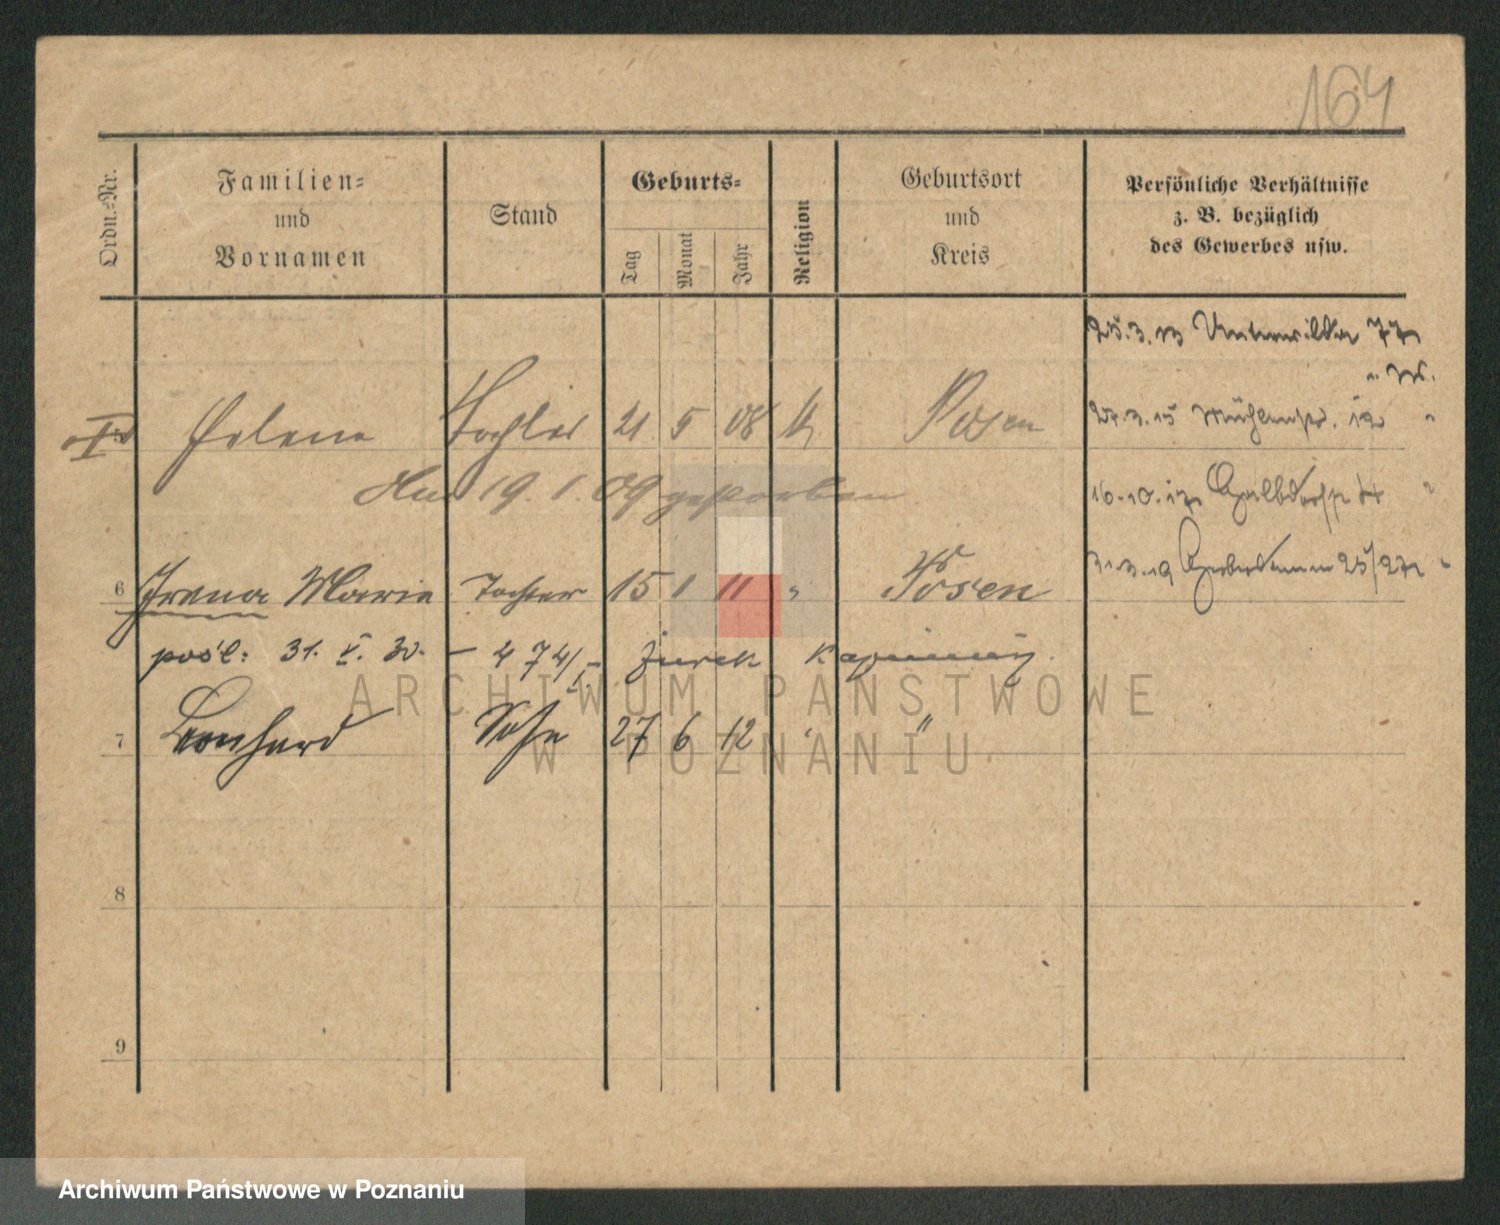 164
Ordn.-Nr.
Familien-
und
Vornamen
Stand
Geburts-
Tag
Monat
Jahr
Religion
Geburtsort
und
Kreis
Persönliche Verhältnisse
z. B. bezüglich
des Gewerbes usw.
25.3.13 Unterwilda 77
Helene Tochter 21 5 08 k Posen
27.3.15 Mühlenstr. 12 "
Am 19.1.09 gestorben
16.10.17
6 Irena Maria Tochter 15 1 11 " Posen
31.3.19 25/27 "
pośl: 31. V. 30. - 474/I Żurek Kazimierz.
7 Leonhard Sohn 27 6 12 " "
8
9
ARCHIWUM PAŃSTWOWE
W POZNANIU
Archiwum Państwowe w Poznaniu